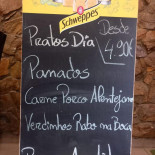 Schweppes
Desde
Pratos Dia 4,90€
Panados
Carne Porco Alentejana
Verdinhos Rabo na Boca